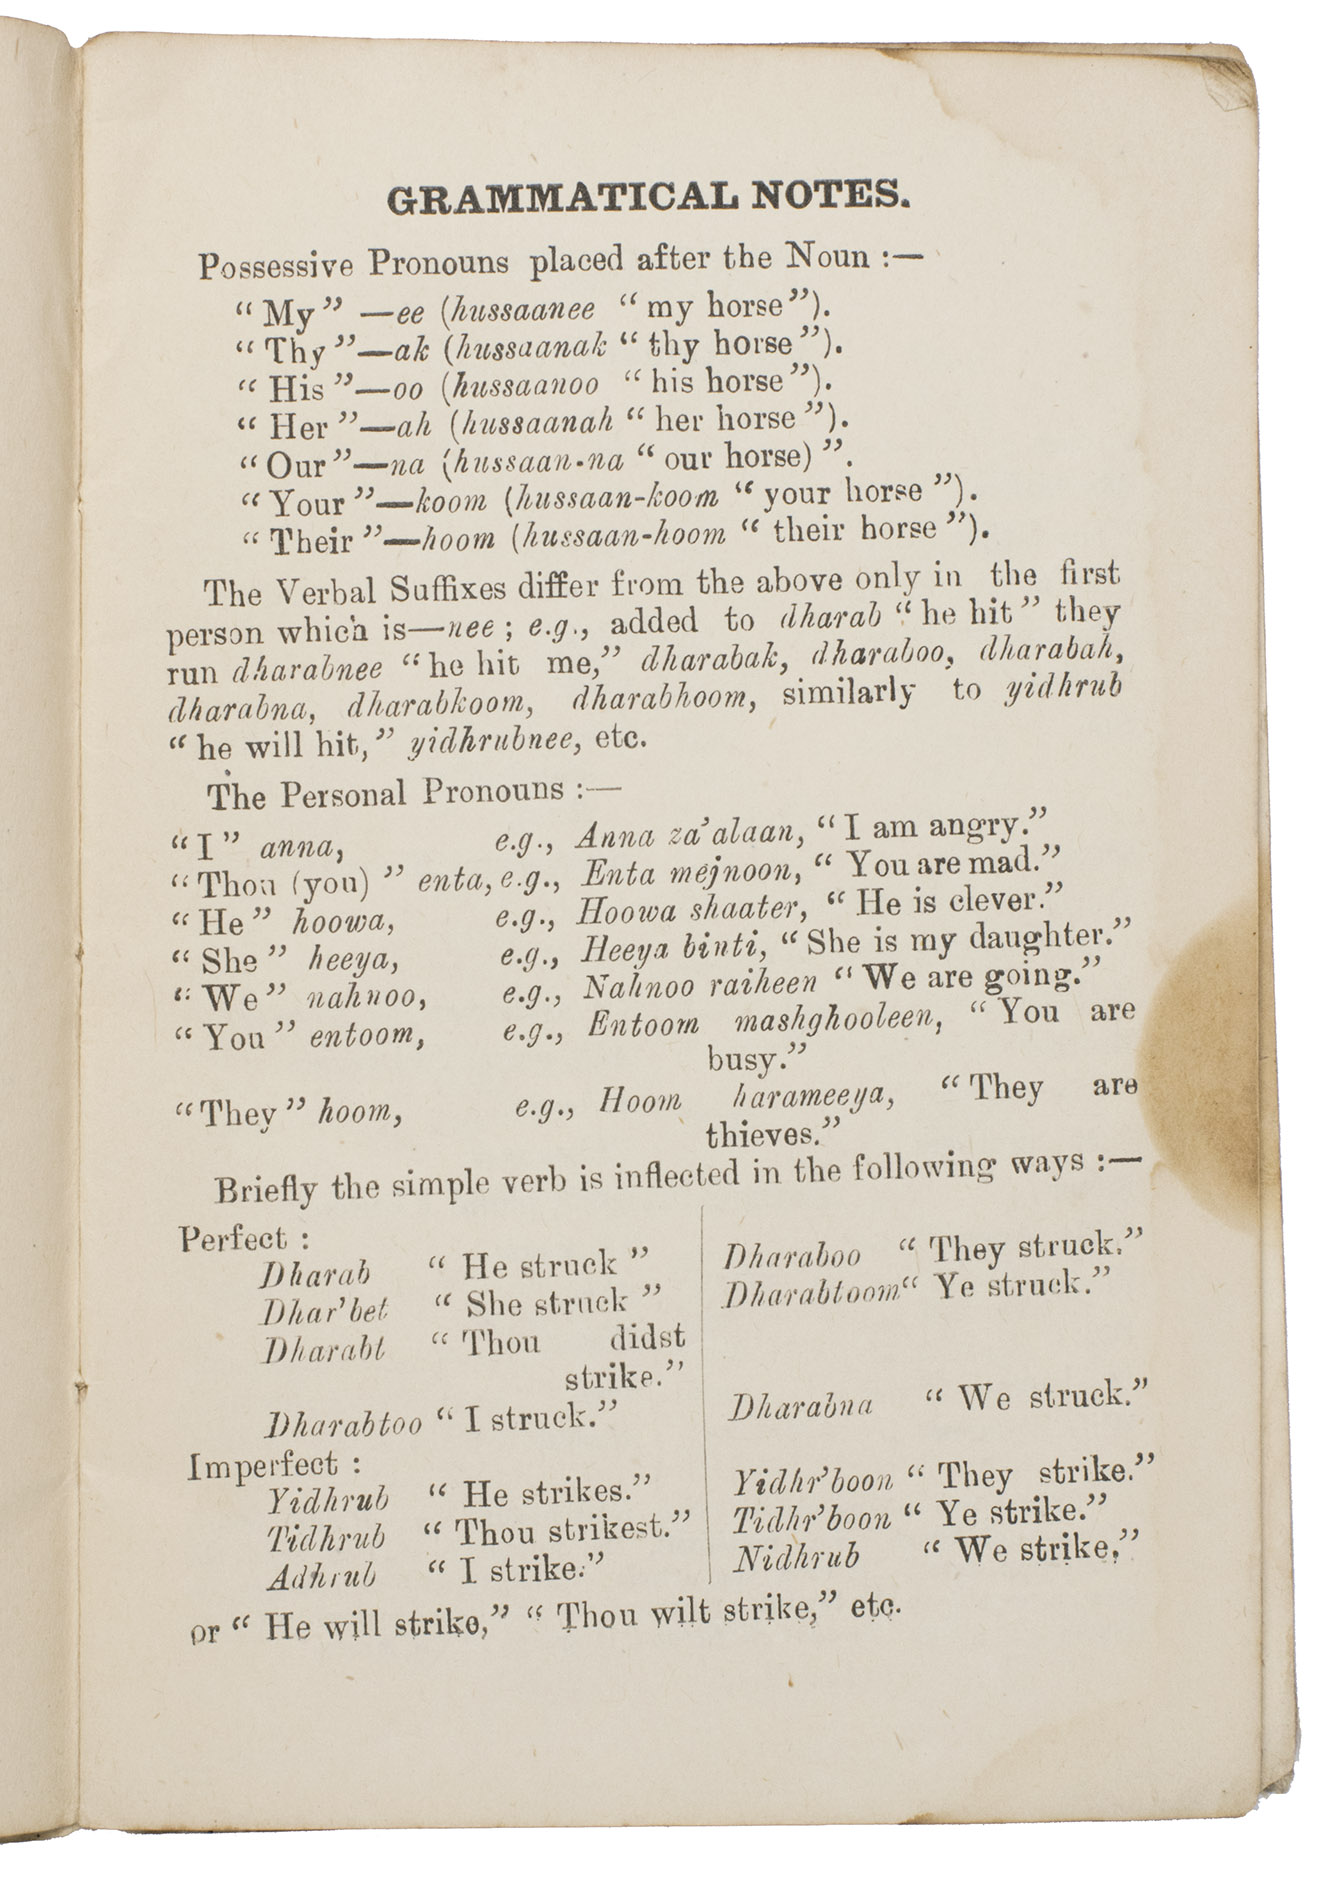 GRAMMATICAL NOTES.
Possessive Pronouns placed after the Noun :—
“ My ” —ee (hussaanee “ my horse”).
“ Thy ”—ak (hussaanak “ thy horse ”).
“ His ”—oo (hussaanoo “ his horse ”).
“ Her ”—ah (hussaanah “ her horse ”).
“ Our ”—na (hussaan-na “ our horse) ”.
“ Your ”—koom (hussaan-koom “ your horse ”).
“ Their ”—hoom (hussaan-hoom “ their horse ”).
The Verbal Suffixes differ from the above only in the first
person which is—nee ; e.g., added to dharab “ he hit ” they
run dharabnee “ he hit me,” dharabak, dharaboo, dharabah,
dharabna, dharabkoom, dharabhoom, similarly to yidhrub
“ he will hit,” yidhrubnee, etc.
The Personal Pronouns :—
“ I ” anna, e.g., Anna za’alaan, “ I am angry.”
“ Thou (you) ” enta, e.g., Enta mejnoon, “ You are mad.”
“ He ” hoowa, e.g., Hoowa shaater, “ He is clever.”
“ She ” heeya, e.g., Heeya binti, “ She is my daughter.”
“ We ” nahnoo, e.g., Nahnoo raiheen “ We are going.”
“ You ” entoom, e.g., Entoom mashghooleen, “ You are
busy.”
“ They ” hoom, e.g., Hoom harameeya, “ They are
thieves.”
Briefly the simple verb is inflected in the following ways :—
Perfect :
Dharab “ He struck ” Dharaboo “ They struck.”
Dhar’bet “ She struck ” Dharabtoom “ Ye struck.”
Dharabt “ Thou didst
strike.”
Dharabtoo “ I struck.” Dharabna “ We struck.”
Imperfect :
Yidhrub “ He strikes.” Yidhr’boon “ They strike.”
Tidhrub “ Thou strikest.” Tidhr’boon “ Ye strike.”
Adhrub “ I strike.” Nidhrub “ We strike,”
or “ He will strike,” “ Thou wilt strike,” etc.